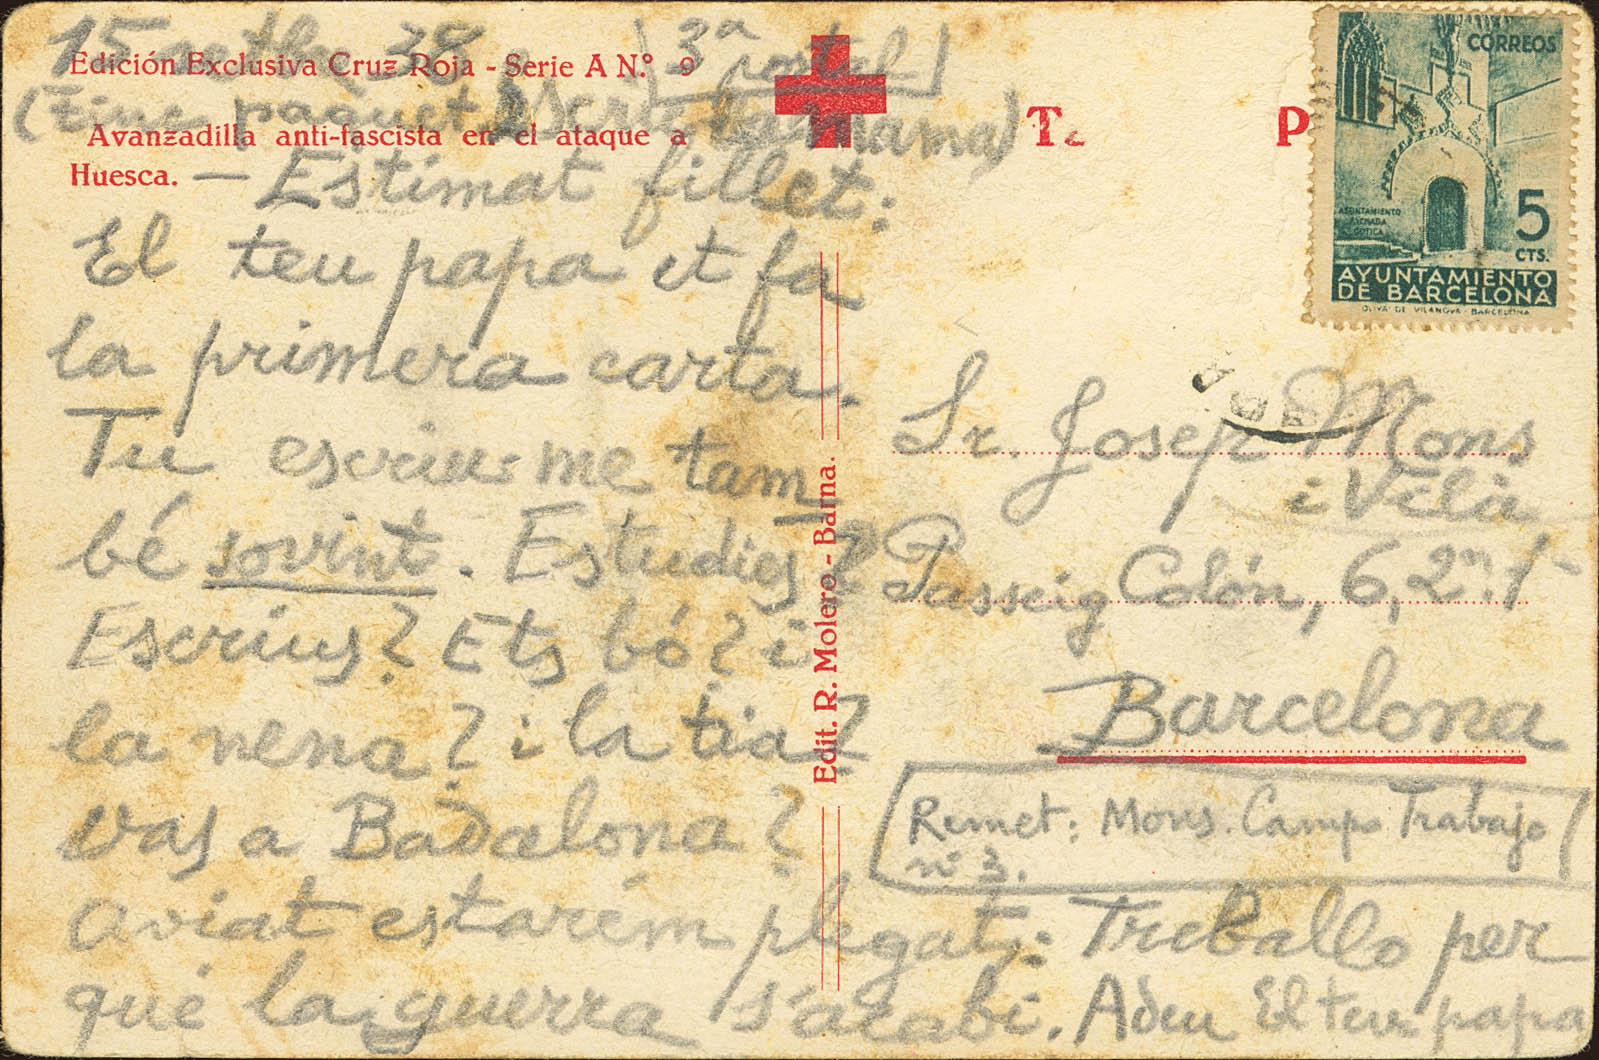 15 setbre 38 (3ª postal)
Edición Exclusiva Cruz Roja - Serie A N.º 9
(Tinc paquet
mama)
Avanzadilla anti-fascista en el ataque a
Huesca.
— Estimat fillet:
El teu papa et fa
la primera carta.
Tu escriu-me tam
bé sovint. Estudies?
Escrius? Ets bó? i
la nena? i la tia?
vas a Badalona?
aviat estarém plegats: Treballo per
qué la guerra s'acabi. Adeu El teu papa
Edit. R. Molero - Barna.
CORREOS
AYUNTAMIENTO
FACHADA
GOTICA
5
CTS.
AYUNTAMIENTO
DE BARCELONA
OLIVA DE VILANOVA - BARCELONA
Sr. Josep Mons
i Vilà
Passeig Colón, 6, 2n. 1ª
Barcelona
Remet: Mons. Campo Trabajo
nº 3.